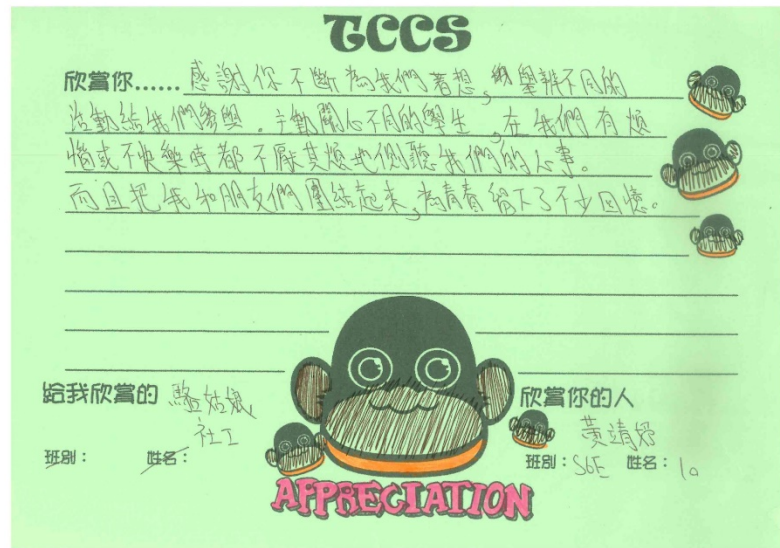 TCCS
欣賞你...... 感謝你不斷為我們著想,舉辦不同的
活動給我們參與。主動關心不同的學生,在我們有煩
惱或不快樂時都不厭其煩地傾聽我們的心事。
而且把我和朋友們團結起來,為青春留下了不少回憶。
給我欣賞的 姑娘
社工
班別: 姓名:
欣賞你的人
黃靖妤
班別:S6E 姓名:10
APPRECIATION